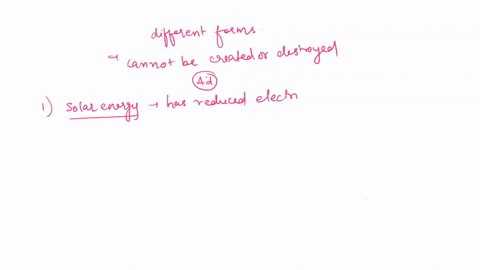 different forms.
" cannot be created or destroyed
4d
1) Solar energy → has reduced electn